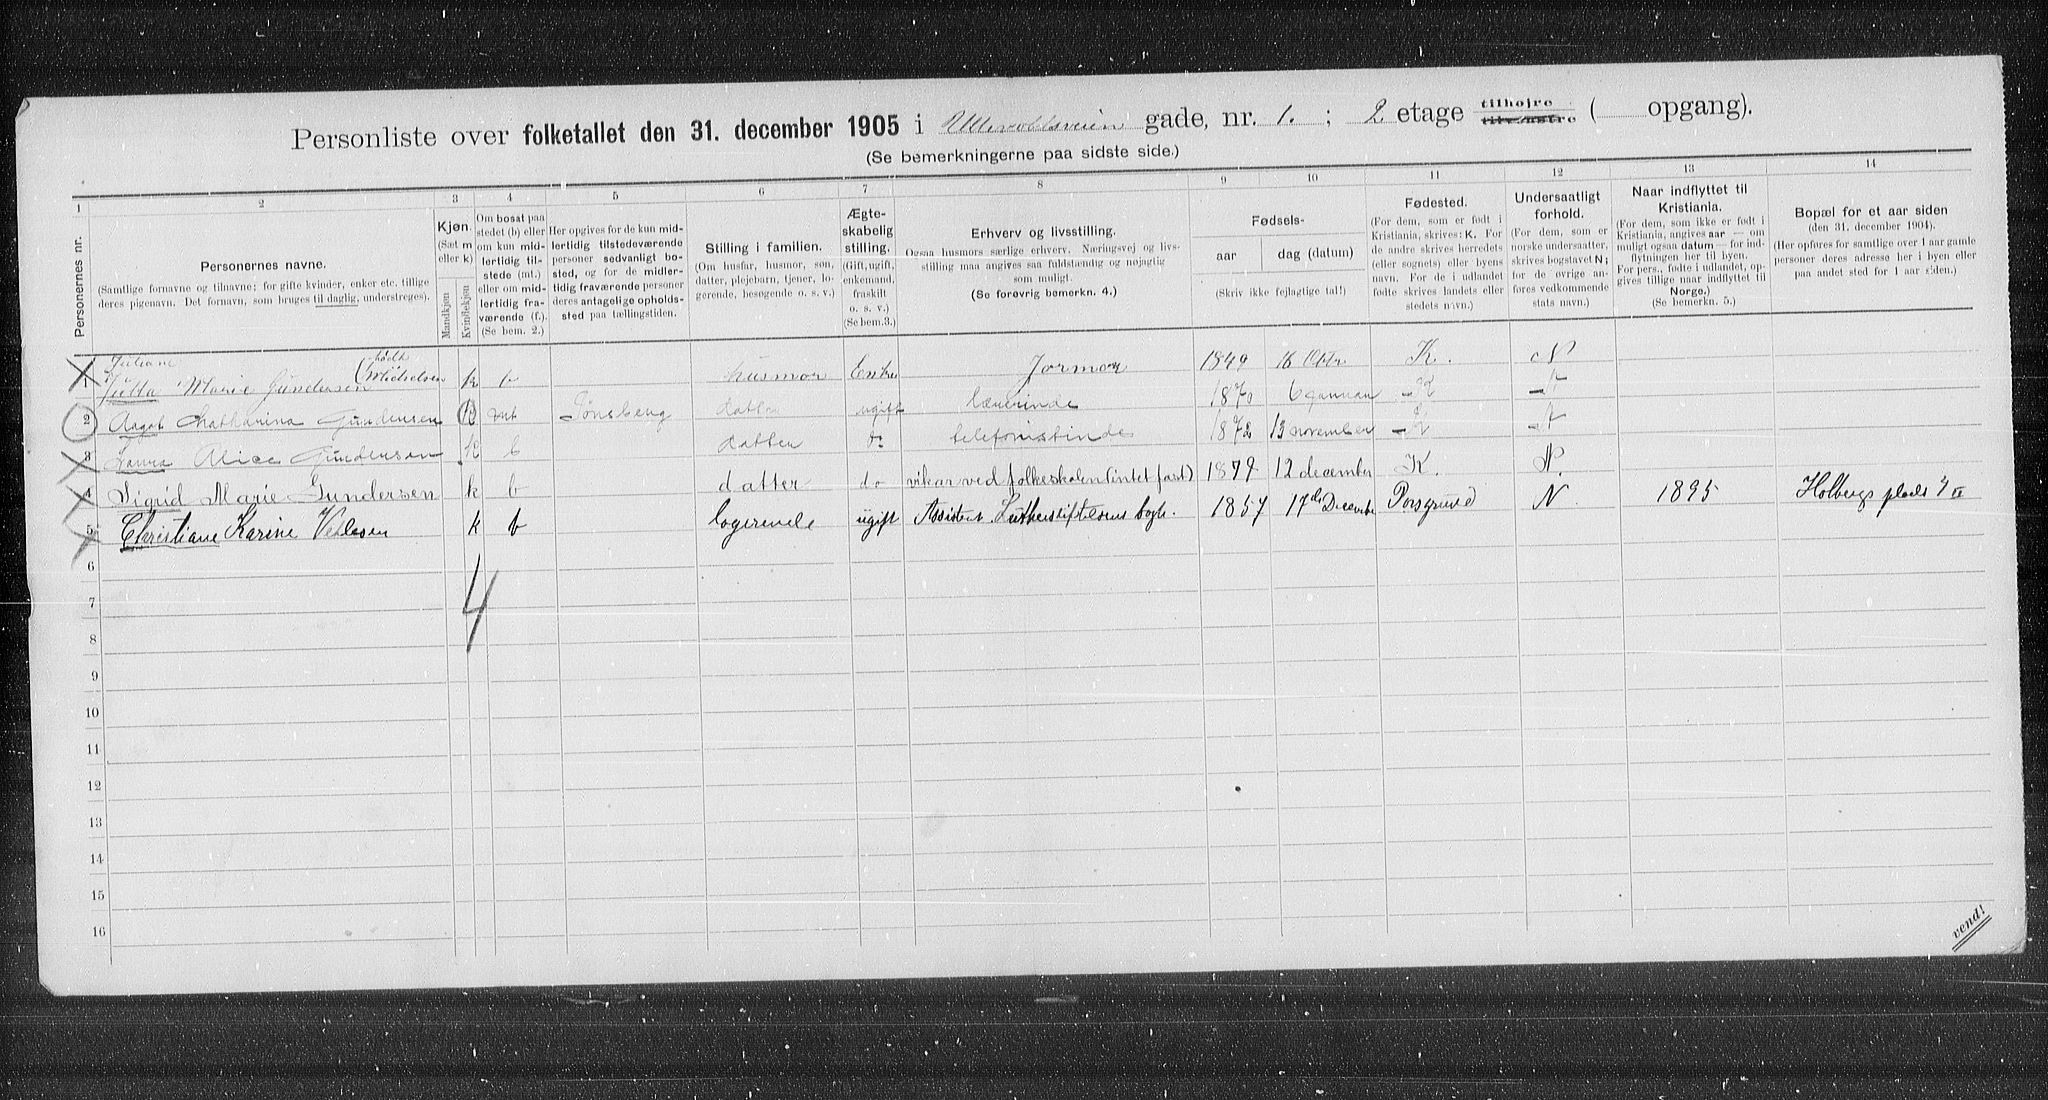 Personliste over folketallet den 31. december 1905 i Ullevoldsveien gade, nr. 1. ; 2 etage tilhøjre tilvenstre ( opgang).
(Se bemerkningerne paa sidste side.)
1 2 3 4 5 6 7 8 9 10 11 12 13 14
Personernes nr.
Personernes navne.
(Samtlige fornavne og tilnavne; for gifte kvinder, enker etc. tillige deres pigenavn. Det fornavn, som bruges til daglig, understreges).
Kjøn.
(Sæt m eller k)
Mandkjøn
Kvindekjøn
Om bosat paa stedet (b) eller om kun midlertidig tilstede (mt.) eller om midlertidig fraværende (f.). (Se bem. 2.)
Her opgives for de kun midlertidig tilstedeværende personer sedvanligt bosted, og for de midlertidig fraværende personer deres antagelige opholdssted paa tællingstiden.
Stilling i familien.
(Om husfar, husmor, søn, datter, plejebarn, tjener, logerende, besøgende o. s. v.)
Ægteskabelig stilling.
(Gift, ugift, enkemand, fraskilt o. s. v.) (Se bem. 3.)
Erhverv og livsstilling.
Ogsaa husmors særlige erhverv. Næringsvej og livsstilling maa angives saa fuldstændig og nøjagtig som muligt.
(Se forøvrig bemerkn. 4.)
Fødsels-
aar
dag (datum)
(Skriv ikke fejlagtige tal!)
Fødested.
(For dem, som er født i Kristiania, skrives: K. For de andre skrives herredets (eller sognets) eller byens navn. For de i udlandet fødte skrives landets eller stedets navn.)
Undersaatligt forhold.
(For dem, som er norske undersaatter, skrives bogstavet N; for de øvrige anføres vedkommende stats navn.)
Naar indflyttet til Kristiania.
(For dem, som ikke er født i Kristiania, angives aar — om muligt ogsaa datum — for indflytningen her til byen. For pers., fødte i udlandet, opgives tillige naar indflyttet til Norge.) (Se bemerkn. 5.)
Bopæl for et aar siden
(den 31. december 1904).
(Her opføres for samtlige over 1 aar gamle personer deres adresse her i byen eller paa andet sted for 1 aar siden.)
Juliane (født
1 Jutta Marie Gundersen Michelsen k b husmor Enke Jormor 1849 16 Oktr. K. N
2 Aagot Katharina Gundersen k mt Tønsberg datter ugift lærerinde 1870 6 januar - K - N
3 Laura Alice Gundersen k b datter do telefonistinde 1872 13 november - K - N
4 Sigrid Marie Gundersen k b datter do vikar ved folkeskolen (intet fast) 1879 12 december K. N.
5 Christiane Karine k b logerende ugift Assistent Lutherstiftelsens bogh. 1857 17de Decembr Porsgrund N 1895 Holbergs plads 4 II
6
4
7
8
9
10
11
12
13
14
15
16
vend!